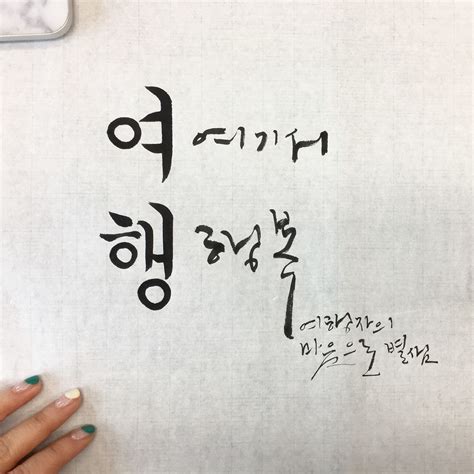 여 여기서
행 행복
여행자의
마음으로 별쌤